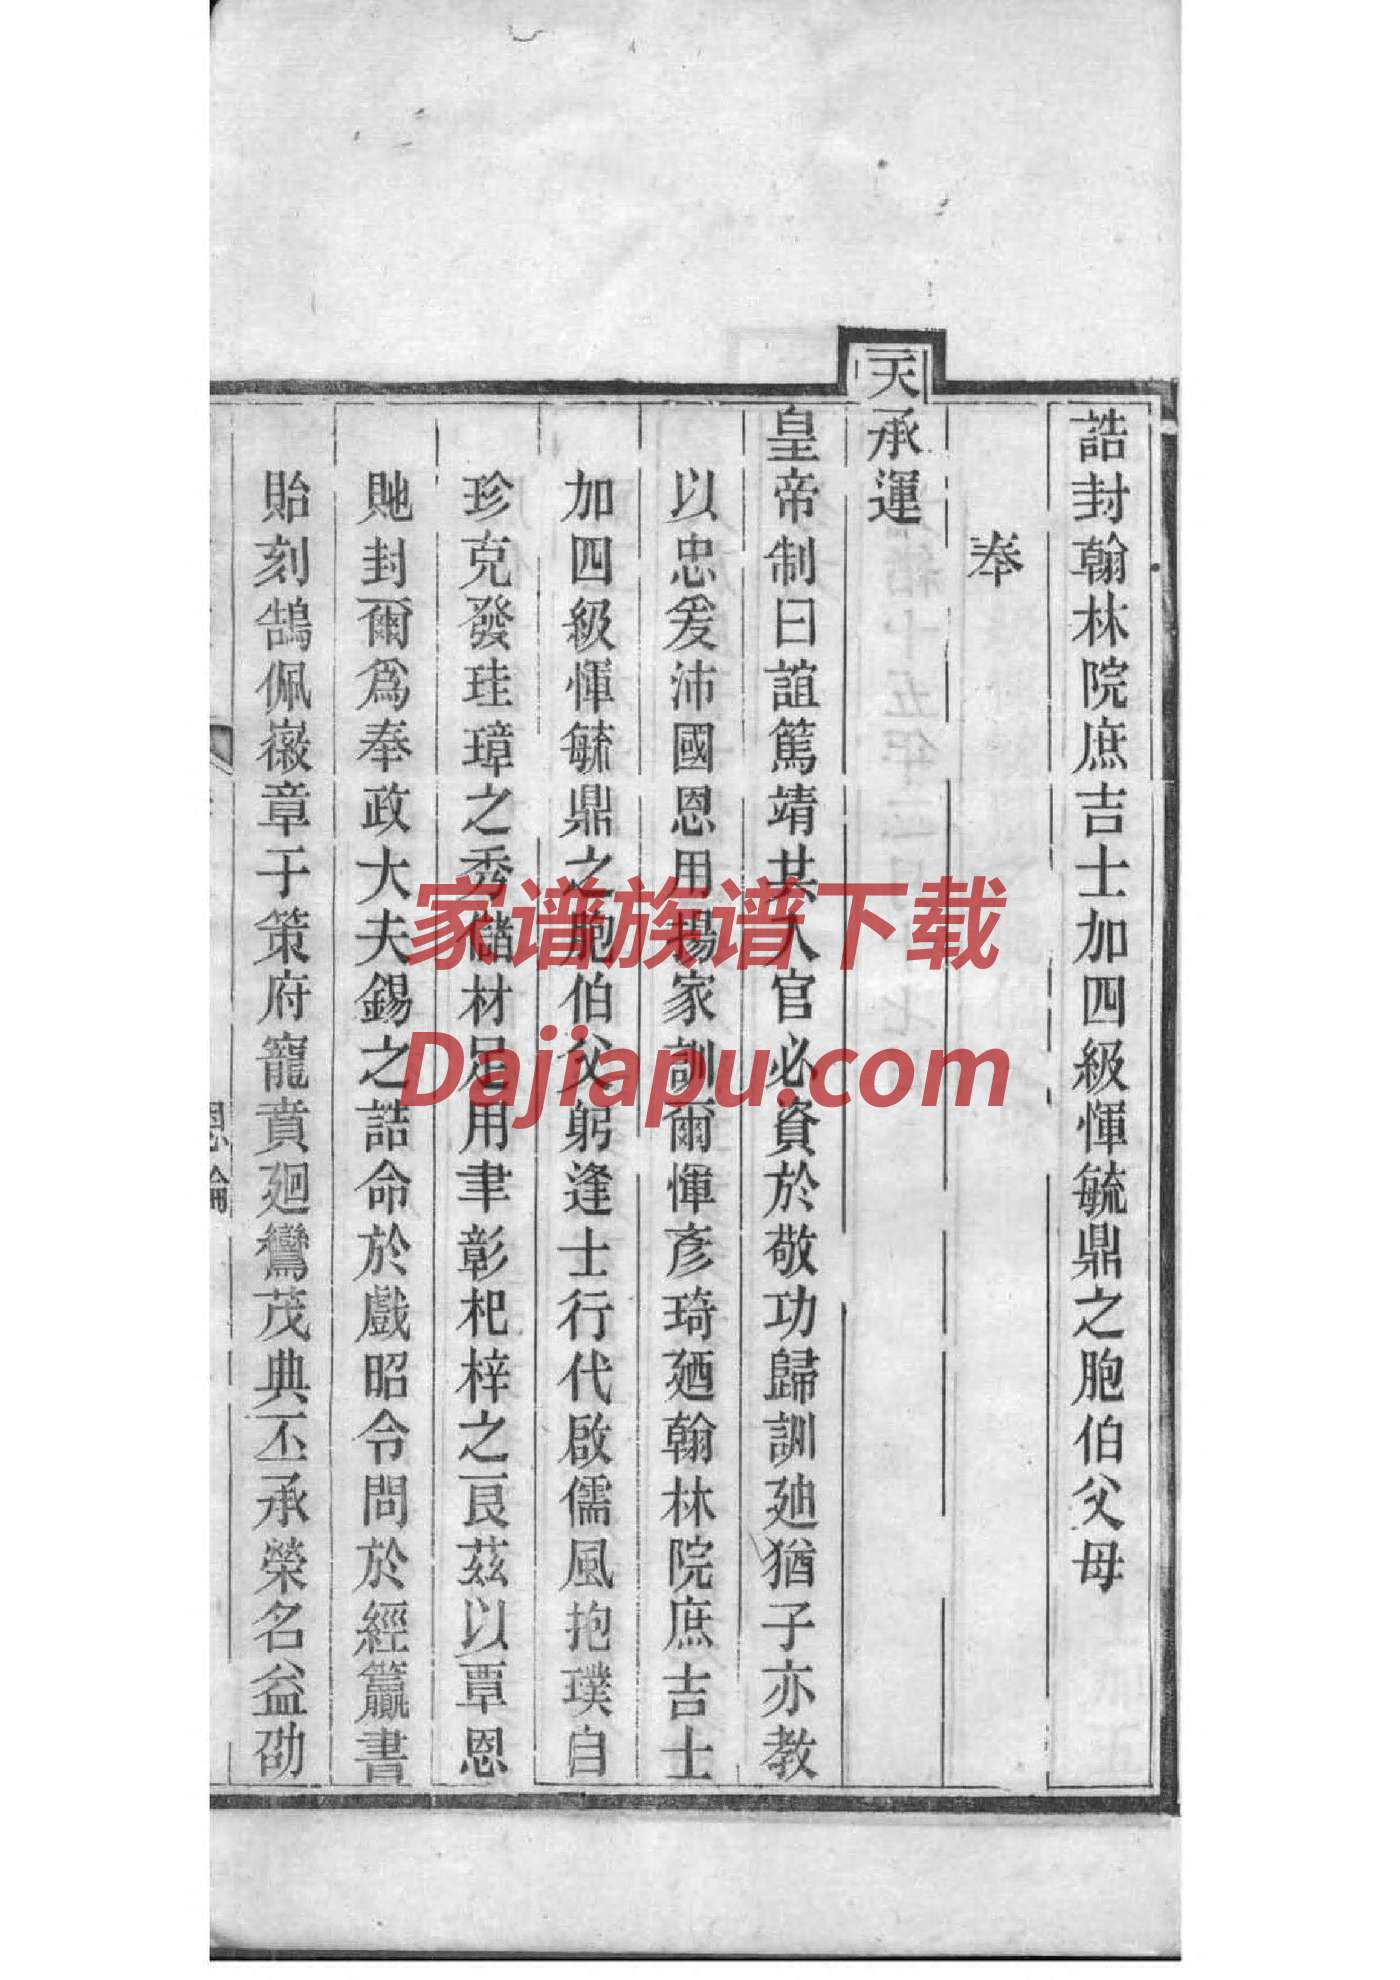 誥封翰林院庶吉士加四級惲毓鼎之胞伯父母
奉
天承運
皇帝制曰誼篤靖共入官必資於敬功歸訓廸猶子亦教
以忠爰沛國恩用揚家訓爾惲彥琦廼翰林院庶吉士
加四級惲毓鼎之胞伯父躬逢士行代啟儒風抱璞自
珍克發珪璋之秀儲材足用聿彰杞梓之良茲以覃恩
貤封爾爲奉政大夫錫之誥命於戲昭令問於經籯書
貽刻鵠佩徽章于策府寵賁廻鸞茂典丕承榮名益劭
恩綸
家谱族谱下载
Dajiapu.com